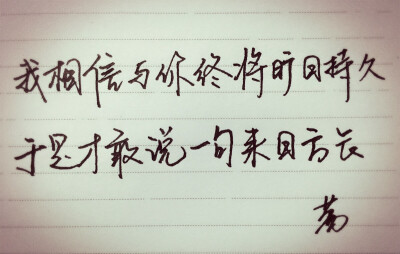 我相信与你终将旷日持久
于是才敢说一句来日方长